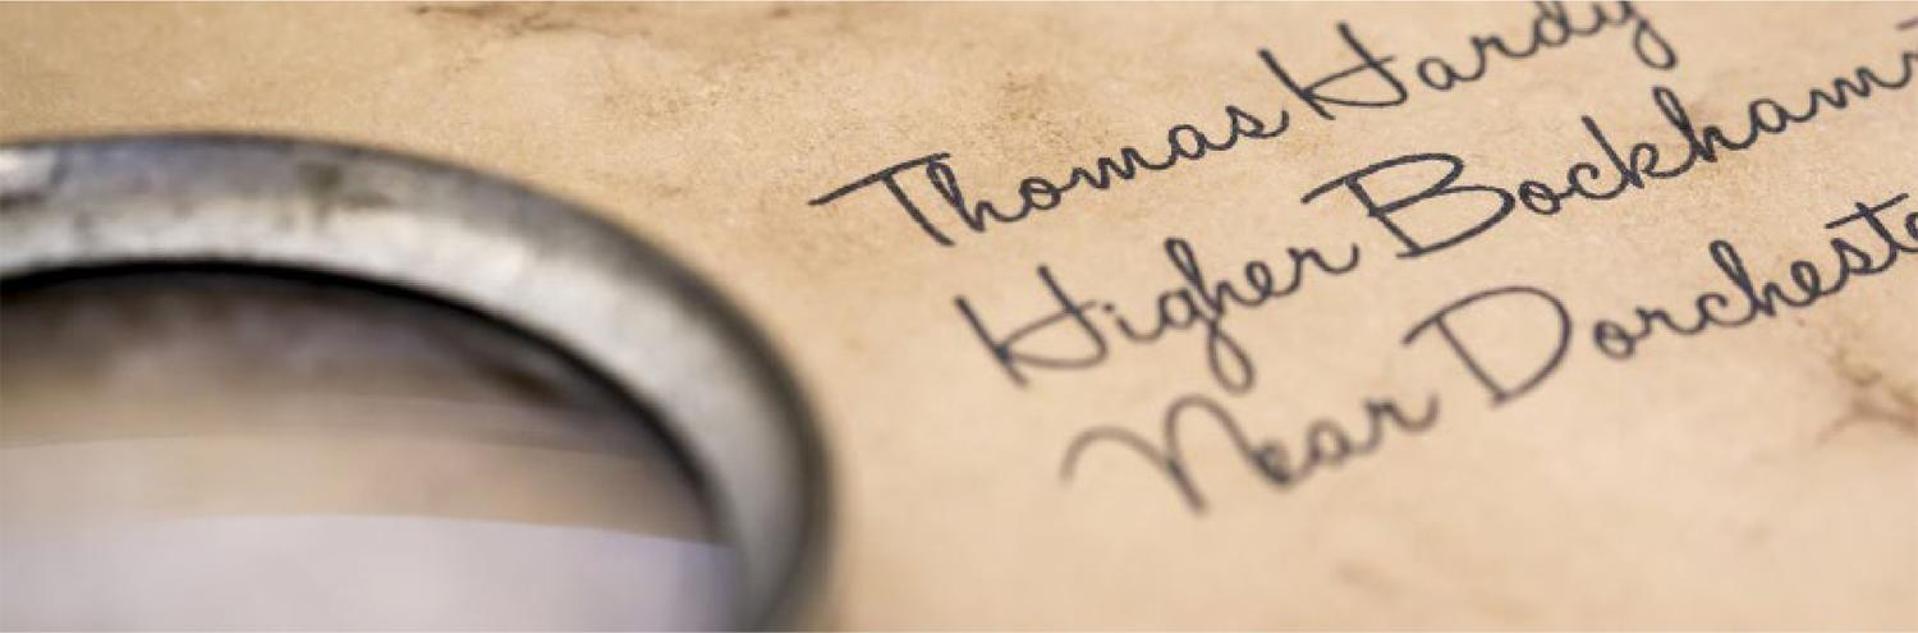 Thomas Hardy
Higher Bockham
Near Dorcheste